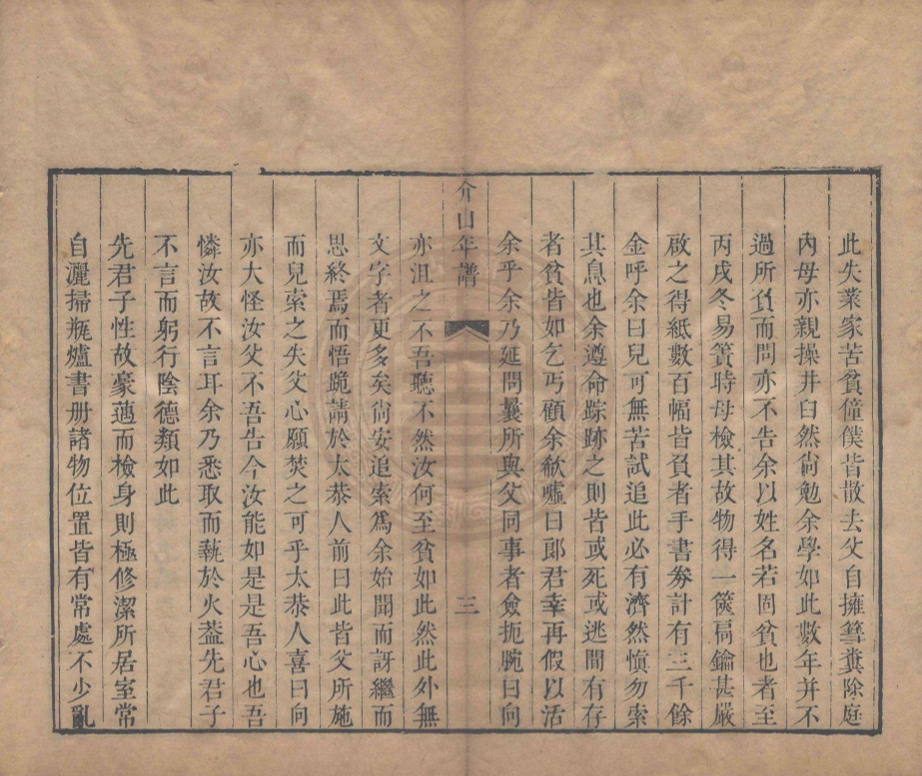 此失業家苦貧僮僕皆散去父自擁篲糞除庭
內母亦親操井臼然尙勉余學如此數年并不
過所負而問亦不告余以姓名若固貧也者至
丙戌冬易簀時母檢其故物得一篋扃鑰甚嚴
啟之得紙數百幅皆負者手書券計有三千餘
金呼余曰兒可無苦試追此必有濟然愼勿索
其息也余遵命踪跡之則皆或死或逃間有存
者貧皆如乞丐顧余欷噓曰郞君幸再假以活
余乎余乃延問曩所與父同事者僉扼腕曰向
介山年譜
三
亦沮之不吾聽不然汝何至貧如此然此外無
文字者更多矣尙安追索爲余始聞而訝繼而
思終焉而悟跪請於太恭人前曰此皆父所施
而兒索之失父心願焚之可乎太恭人喜曰向
亦大怪汝父不吾告今汝能如是是吾心也吾
憐汝故不言耳余乃悉取而爇於火葢先君子
不言而躬行陰德類如此
先君子性故豪邁而檢身則極修潔所居室常
自灑掃瓶爐書册諸物位置皆有常處不少亂